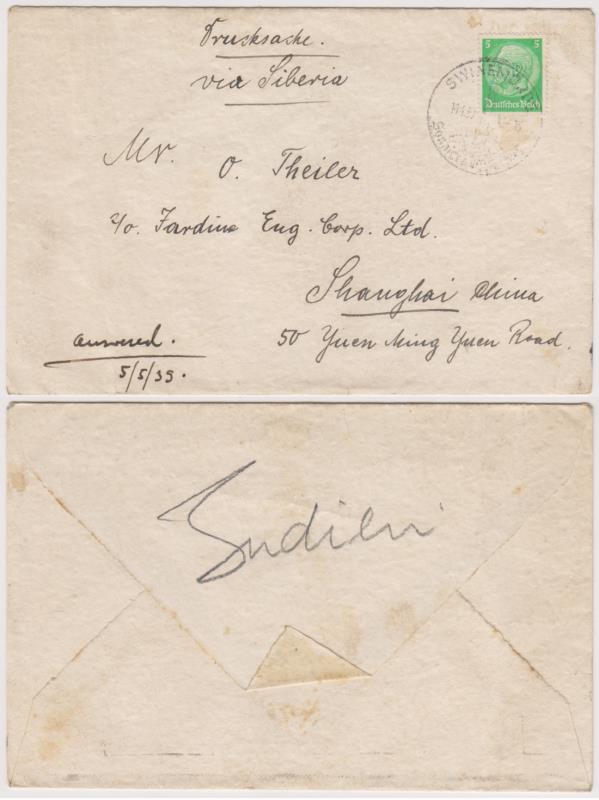 Drucksache.
via Siberia
5 5
Deutsches Reich
Mr. O. Theiler
c/o. Jardine Eng. Corp. Ltd.
Shanghai China
50 Yuen Ming Yuen Road.
answered.
5/5/39.